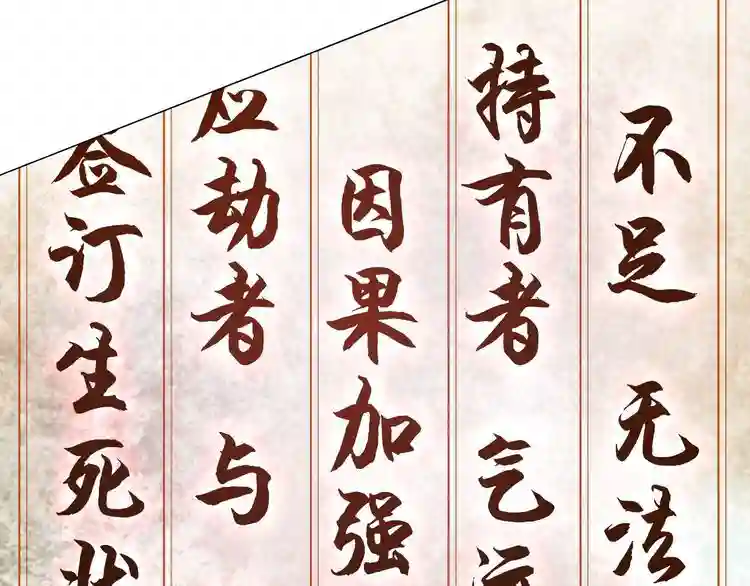 不足 无法
持有者 气运
因果加强
应劫者 与
签订生死状